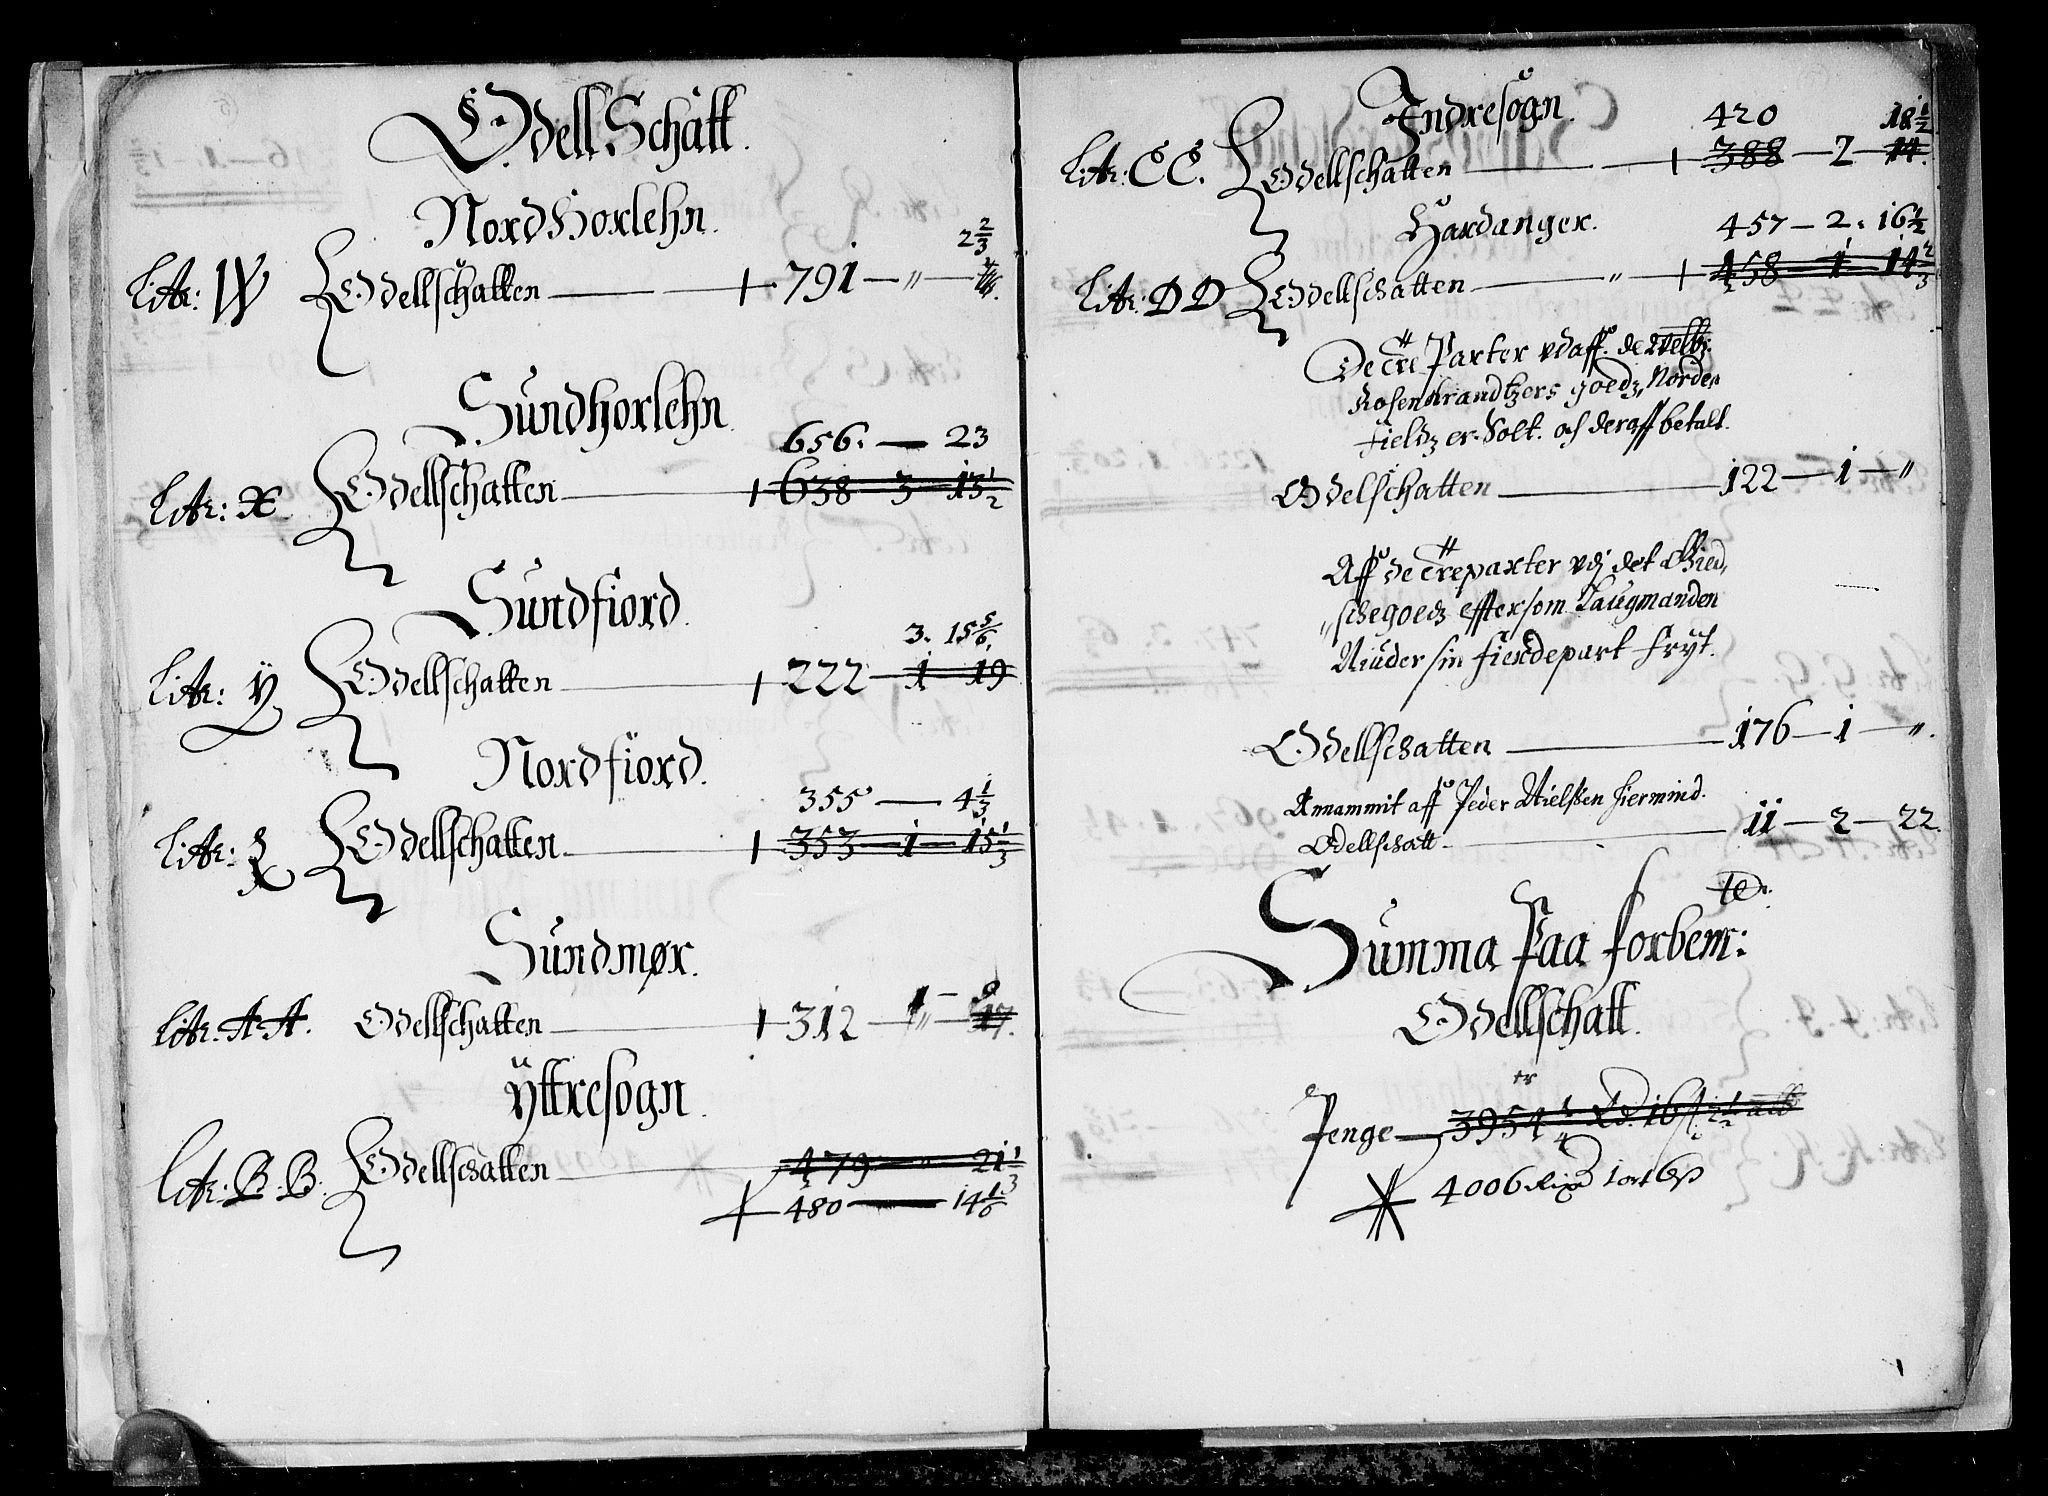 Odell Schatt.
Nordhorlehn.
2 2/3
Litr: W Odellschatten 791 — „ —
Sundhorlehn.
656. — 23
Litr: X Odellschatten 638 — 3 — 13 1/2
Sundfiord.
3. 15 5/6.
Litr: Y Odellschatten 222 — 1 — 19
Nordfiord.
355 — 4 1/3
Litr: Z Odellschatten 353 — 1 — 15 1/3
Sundmør.
1 — 9
Litr. AA. Odellschatten 312 — „ — 17.
Yttresogn.
Litr: B.B. Odellschatten 479 — „ — 21 1/3
480 — 14 1/6
Indresogn.
420 18 1/2
Litr: CC. Odellschatten 388 — 2 — 14.
Hardanger.
457 — 2. 16 1/2
Litr: DD Odellschatten „ 458 — 1 — 14 2/3
De tre Parter udaff. de Welb:
Rosenkrandtzers goedz, Norden
Fieldz er Solt. och deraff betalt.
Odelschatten 122 — 1 — „
Aff de tre parter udj det
„schegoedz effter som Laugmanden
Niuder sin fierdepart fryt.
Odellschatten 176 — 1 — „.
Annammit aff Peder Nielssen Hiermind.
Odellschatt. 11 — 2 — 22.
Summa Paa forbem:te
Odellschatt.
er
Penge 3954 1/4 Rd. 16 2 1/2 alb
4006 Rixd 1 ort 6 s